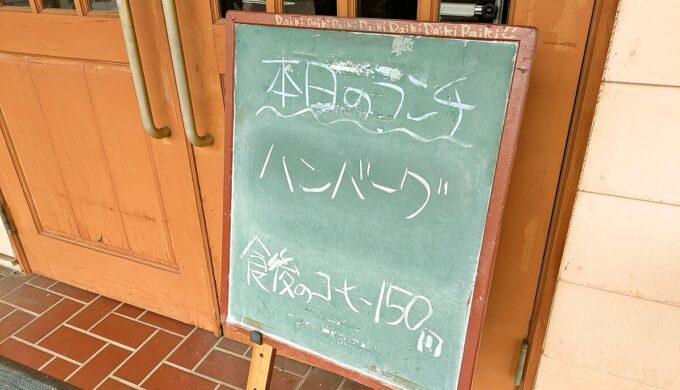 Daiki Daiki Daiki Daiki Daiki Daiki Daiki!!
本日のランチ
ハンバーグ
食後のコーヒー150円